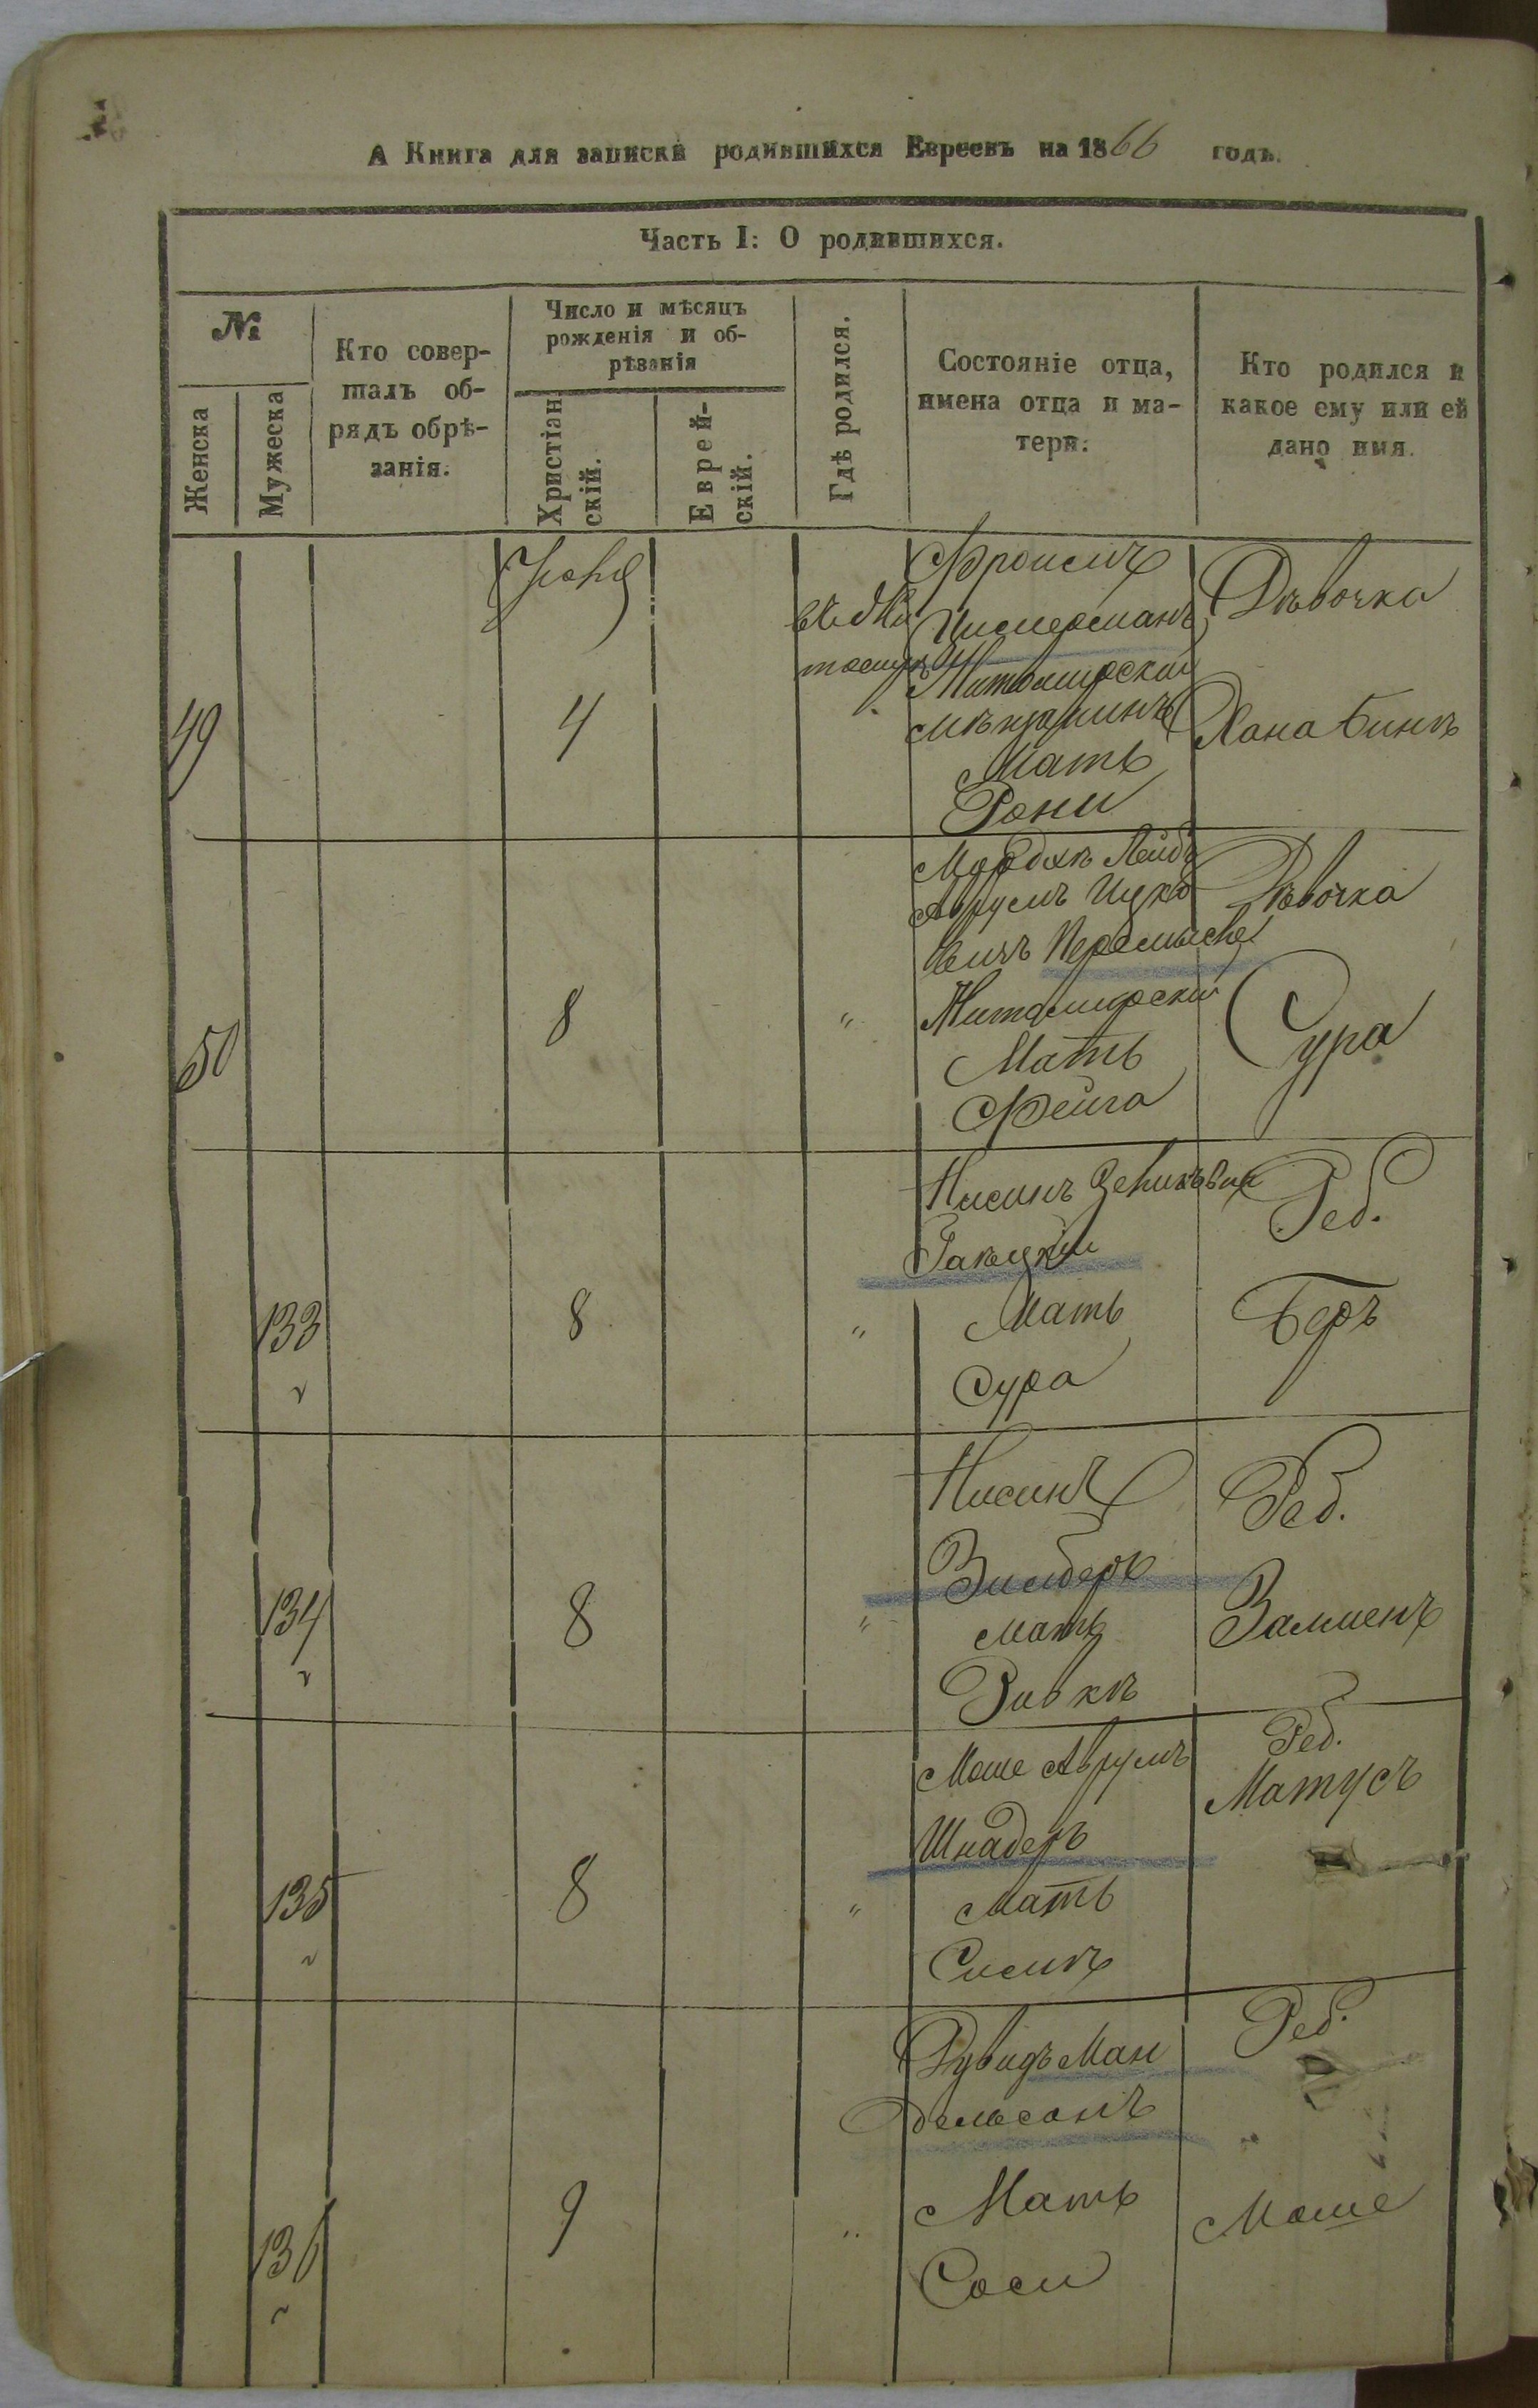 А Книга для записки родившихся Евреевъ на 1866 годъ.
Часть I: О родившихся.
№
Женска
Мужеска
Кто совер-
шалъ об-
рядъ обрѣ-
занія.
Число и мѣсяцъ
рожденія и об-
рѣзанія
Христіан
скій.
Еврей-
скій.
Гдѣ родился.
Состояніе отца,
имена отца и ма-
тери.
Кто родился и
какое ему или ей
дано имя.
49
4
Фроимъ
Житомирскій
мѣщанинъ
Мать
Рони
Дѣвочка
Хана Бинѣ
50
8
"
Мордхѣ Лейбъ
Аврумъ Ицко
вичъ
Житомирскій
Мать
Фейга
Дѣвочка
Сура
133
8
"
Нисинъ
Ракуцкій
Мать
Сура
Реб.
Беръ
134
8
"
Нисинъ
Зильберъ
Мать
Ривкѣ
Реб.
Залменъ
135
8
"
Моше Аврумъ
Шнадеръ
Мать
Симѣ
Реб.
Матусъ
136
9
"
Дувидъ Ман
дельсонъ
Мать
Соси
Реб.
Моше